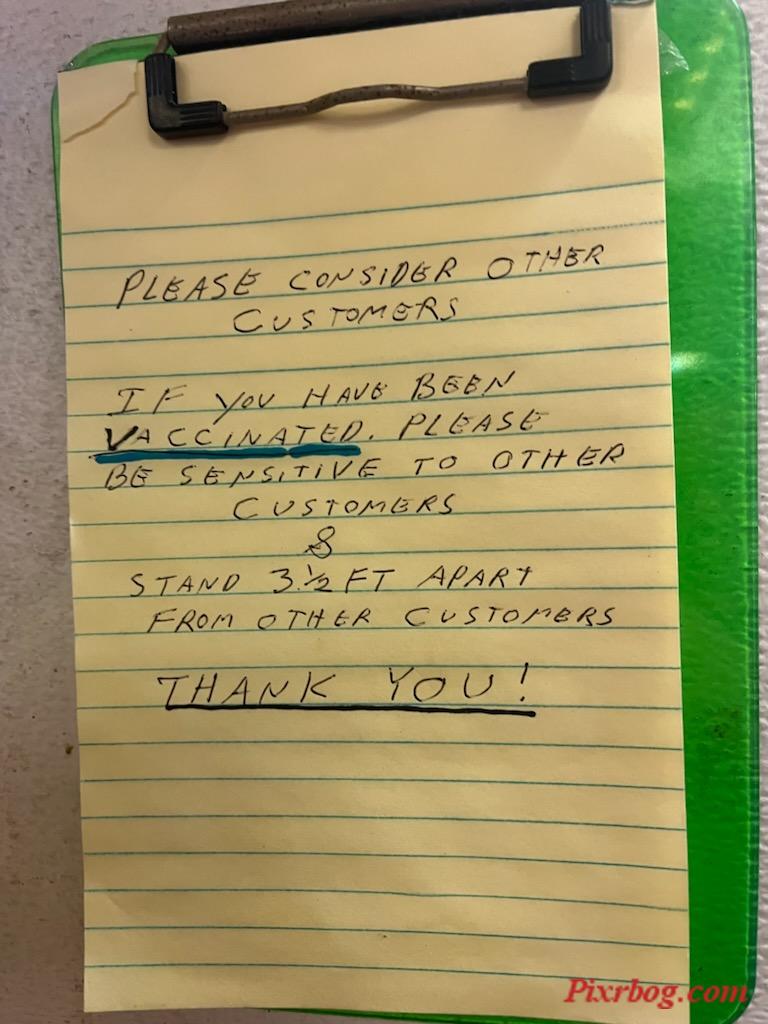 PLEASE CONSIDER OTHER
CUSTOMERS
IF YOU HAVE BEEN
VACCINATED. PLEASE
BE SENSITIVE TO OTHER
CUSTOMERS
&
STAND 3 1/2 FT APART
FROM OTHER CUSTOMERS
THANK YOU!
Pixrbog.com